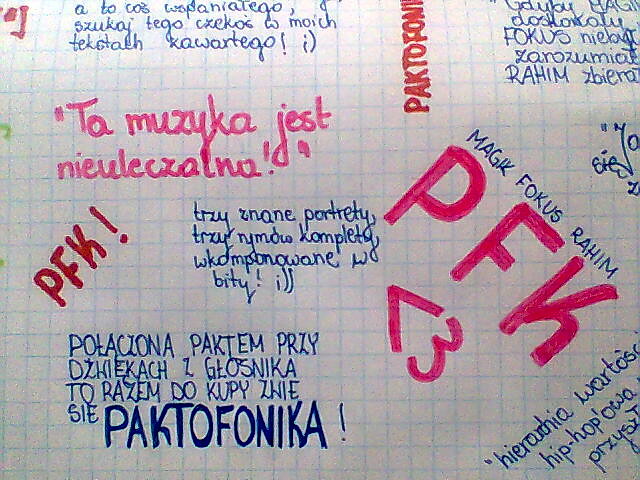 a to coś wspaniałego,
szukaj tego czekoś w moich
tekstach kawartego! ;)
PAKTOFONI
"Gdyby MAGI
doskonały
FOKUS nieby
zarozumiał
RAHIM zbiera
"Ta muzyka jest
nieuleczalna!"
MAGIK FOKUS RAHIM
PFK
<3
PFK!
trzy znane portrety,
trzy rymów komplety,
wkomponowane w
bity! ;))
POŁĄCZONA PAKTEM PRZY
DŹWIĘKACH Z GŁOŚNIKA
TO RAZEM DO KUPY ZWIE
SIĘ PAKTOFONIKA!
"hierarchia wartośc
hip-hop'owa
przysz
się